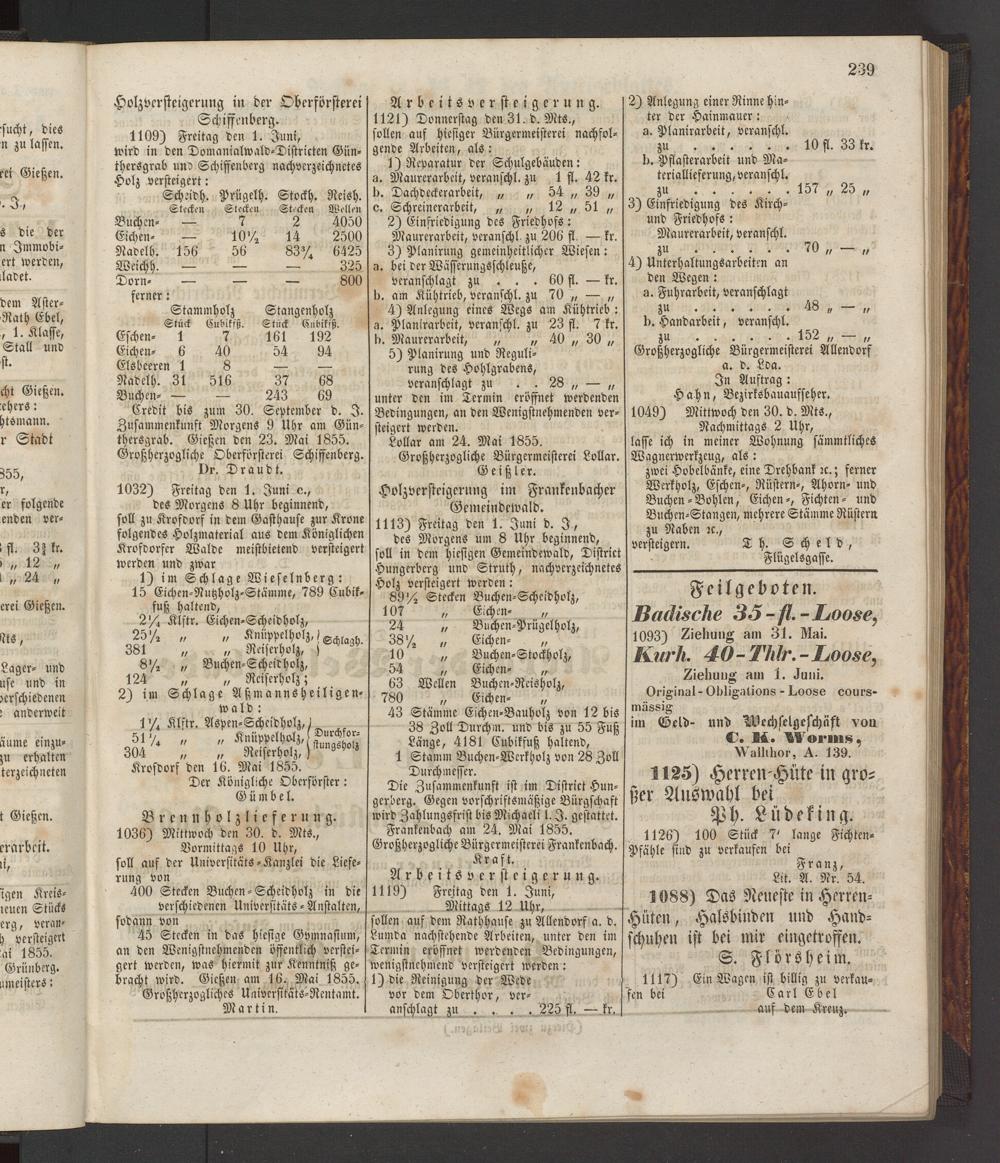 239
Holzversteigerung in der Oberförsterei
Schiffenberg.
1109) Freitag den 1. Juni,
wird in den Domanialwald-Districten Gün-
thersgrab und Schiffenberg nachverzeichnetes
Holz versteigert:
Scheidh. Prügelh. Stockh. Reish.
Stecken Stecken Stecken Wellen
Buchen- — 7 2 4050
Eichen- — 10½ 14 2500
Nadelh. 156 56 83¾ 6425
Weichh. — — — 325
Dorn- — — — 800
ferner:
Stammholz Stangenholz
Stück Cubikfß. Stück Cubikfß.
Eschen- 1 7 161 192
Eichen- 6 40 54 94
Elsbeeren 1 8 — —
Nadelh. 31 516 37 68
Buchen- — — 243 69
Credit bis zum 30. September d. J.
Zusammenkunft Morgens 9 Uhr am Gün-
thersgrab. Gießen den 23. Mai 1855.
Großherzogliche Oberförsterei Schiffenberg.
Dr. Draudt.
1032) Freitag den 1. Juni c.,
des Morgens 8 Uhr beginnend,
soll zu Krofdorf in dem Gasthause zur Krone
folgendes Holzmaterial aus dem Königlichen
Krofdorfer Walde meistbietend versteigert
werden und zwar
1) im Schlage Wieselnberg:
15 Eichen-Nutzholz-Stämme, 789 Cubik-
fuß haltend,
2¼ Klftr. Eichen-Scheidholz,
25½ „ „ Knüppelholz, Schlagh.
381 „ „ Reiserholz,
8½ „ Buchen-Scheidholz,
124 „ „ Reiserholz;
2) im Schlage Aßmannsheiligen-
wald:
1¼ Klftr. Aspen-Scheidholz,
51¼ „ „ Knüppelholz, Durchfor-
304 „ „ Reiserholz, stungsholz
Krofdorf den 16. Mai 1855.
Der Königliche Oberförster:
Gümbel.
Brennholzlieferung.
1036) Mittwoch den 30. d. Mts.,
Vormittags 10 Uhr,
soll auf der Universitäts-Kanzlei die Liefe-
rung von
400 Stecken Buchen-Scheidholz in die
verschiedenen Universitäts-Anstalten,
sodann von
45 Stecken in das hiesige Gymnasium,
an den Wenigstnehmenden öffentlich verstei-
gert werden, was hiermit zur Kenntniß ge-
bracht wird. Gießen am 16. Mai 1855.
Großherzogliches Universitäts-Rentamt.
Martin.
Arbeitsversteigerung.
1121) Donnerstag den 31. d. Mts.,
sollen auf hiesiger Bürgermeisterei nachfol-
gende Arbeiten, als:
1) Reparatur der Schulgebäuden:
a. Maurerarbeit, veranschl. zu 1 fl. 42 kr.
b. Dachdeckerarbeit, „ „ 54 „ 39 „
c. Schreinerarbeit, „ „ 12 „ 51 „
2) Einfriedigung des Friedhofs:
Maurerarbeit, veranschl. zu 206 fl. — kr.
3) Planirung gemeinheitlicher Wiesen:
a. bei der Wässerungsschleuße,
veranschlagt zu . . . 60 fl. — kr.
b. am Kühtrieb, veranschl. zu 70 „ — „
4) Anlegung eines Wegs am Kühtrieb:
a. Planirarbeit, veranschl. zu 23 fl. 7 kr.
b. Maurerarbeit, „ „ 40 „ 30 „
5) Planirung und Reguli-
rung des Hohlgrabens,
veranschlagt zu . . 28 „ — „
unter den im Termin eröffnet werdenden
Bedingungen, an den Wenigstnehmenden ver-
steigert werden.
Lollar am 24. Mai 1855.
Großherzogliche Bürgermeisterei Lollar.
Geißler.
Holzversteigerung im Frankenbacher
Gemeindewald.
1113) Freitag den 1. Juni d. J.,
des Morgens um 8 Uhr beginnend,
soll in dem hiesigen Gemeindewald, District
Hungerberg und Struth, nachverzeichnetes
Holz versteigert werden:
89½ Stecken Buchen-Scheidholz,
107 „ Eichen- „
24 „ Buchen-Prügelholz,
38½ „ Eichen- „
10 „ Buchen-Stockholz,
54 „ Eichen- „
63 Wellen Buchen-Reisholz,
780 „ Eichen- „
43 Stämme Eichen-Bauholz von 12 bis
38 Zoll Durchm. und bis zu 55 Fuß
Länge, 4181 Cubikfuß haltend,
1 Stamm Buchen-Werkholz von 28 Zoll
Durchmesser.
Die Zusammenkunft ist im District Hun-
gerberg. Gegen vorschriftsmäßige Bürgschaft
wird Zahlungsfrist bis Michaeli l. J. gestattet.
Frankenbach am 24. Mai 1855.
Großherzogliche Bürgermeisterei Frankenbach.
Kraft.
Arbeitsversteigerung.
1119) Freitag den 1. Juni,
Mittags 12 Uhr,
sollen auf dem Rathhause zu Allendorf a. d.
Lumda nachstehende Arbeiten, unter den im
Termin eröffnet werdenden Bedingungen,
wenigstnehmend versteigert werden:
1) die Reinigung der Wede
vor dem Oberthor, ver-
anschlagt zu . . . . 225 fl. — kr.
2) Anlegung einer Rinne hin-
ter der Hainmauer:
a. Planirarbeit, veranschl.
zu . . . . . . 10 fl. 33 kr.
b. Pflasterarbeit und Ma-
teriallieferung, veranschl.
zu . . . . . . 157 „ 25 „
3) Einfriedigung des Kirch-
und Friedhofs:
Maurerarbeit, veranschl.
zu . . . . . . 70 „ — „
4) Unterhaltungsarbeiten an
den Wegen:
a. Fuhrarbeit, veranschlagt
zu . . . . . . 48 „ — „
b. Handarbeit, veranschl.
zu . . . . . . 152 „ — „
Großherzogliche Bürgermeisterei Allendorf
a. d. Lda.
In Auftrag:
Hahn, Bezirksbauaufseher.
1049) Mittwoch den 30. d. Mts.,
Nachmittags 2 Uhr,
lasse ich in meiner Wohnung sämmtliches
Wagnerwerkzeug, als:
zwei Hobelbänke, eine Drehbank ꝛc.; ferner
Werkholz, Eschen-, Rüstern-, Ahorn- und
Buchen-Bohlen, Eichen-, Fichten- und
Buchen-Stangen, mehrere Stämme Rüstern
zu Naben ꝛc.,
versteigern. Th. Scheld,
Flügelsgasse.
Feilgeboten.
Badische 35-fl.-Loose,
1093) Ziehung am 31. Mai.
Kurh. 40-Thlr.-Loose,
Ziehung am 1. Juni.
Original-Obligations-Loose cours-
mässig
im Geld- und Wechselgeschäft von
C. K. Worms,
Wallthor, A. 139.
1125) Herren-Hüte in gro-
ßer Auswahl bei
Ph. Lüdeking.
1126) 100 Stück 7' lange Fichten-
Pfähle sind zu verkaufen bei
Franz,
Lit. A. Nr. 54.
1088) Das Neueste in Herren-
Hüten, Halsbinden und Hand-
schuhen ist bei mir eingetroffen.
S. Flörsheim.
1117) Ein Wagen ist billig zu verkau-
fen bei Carl Ebel
auf dem Kreuz.